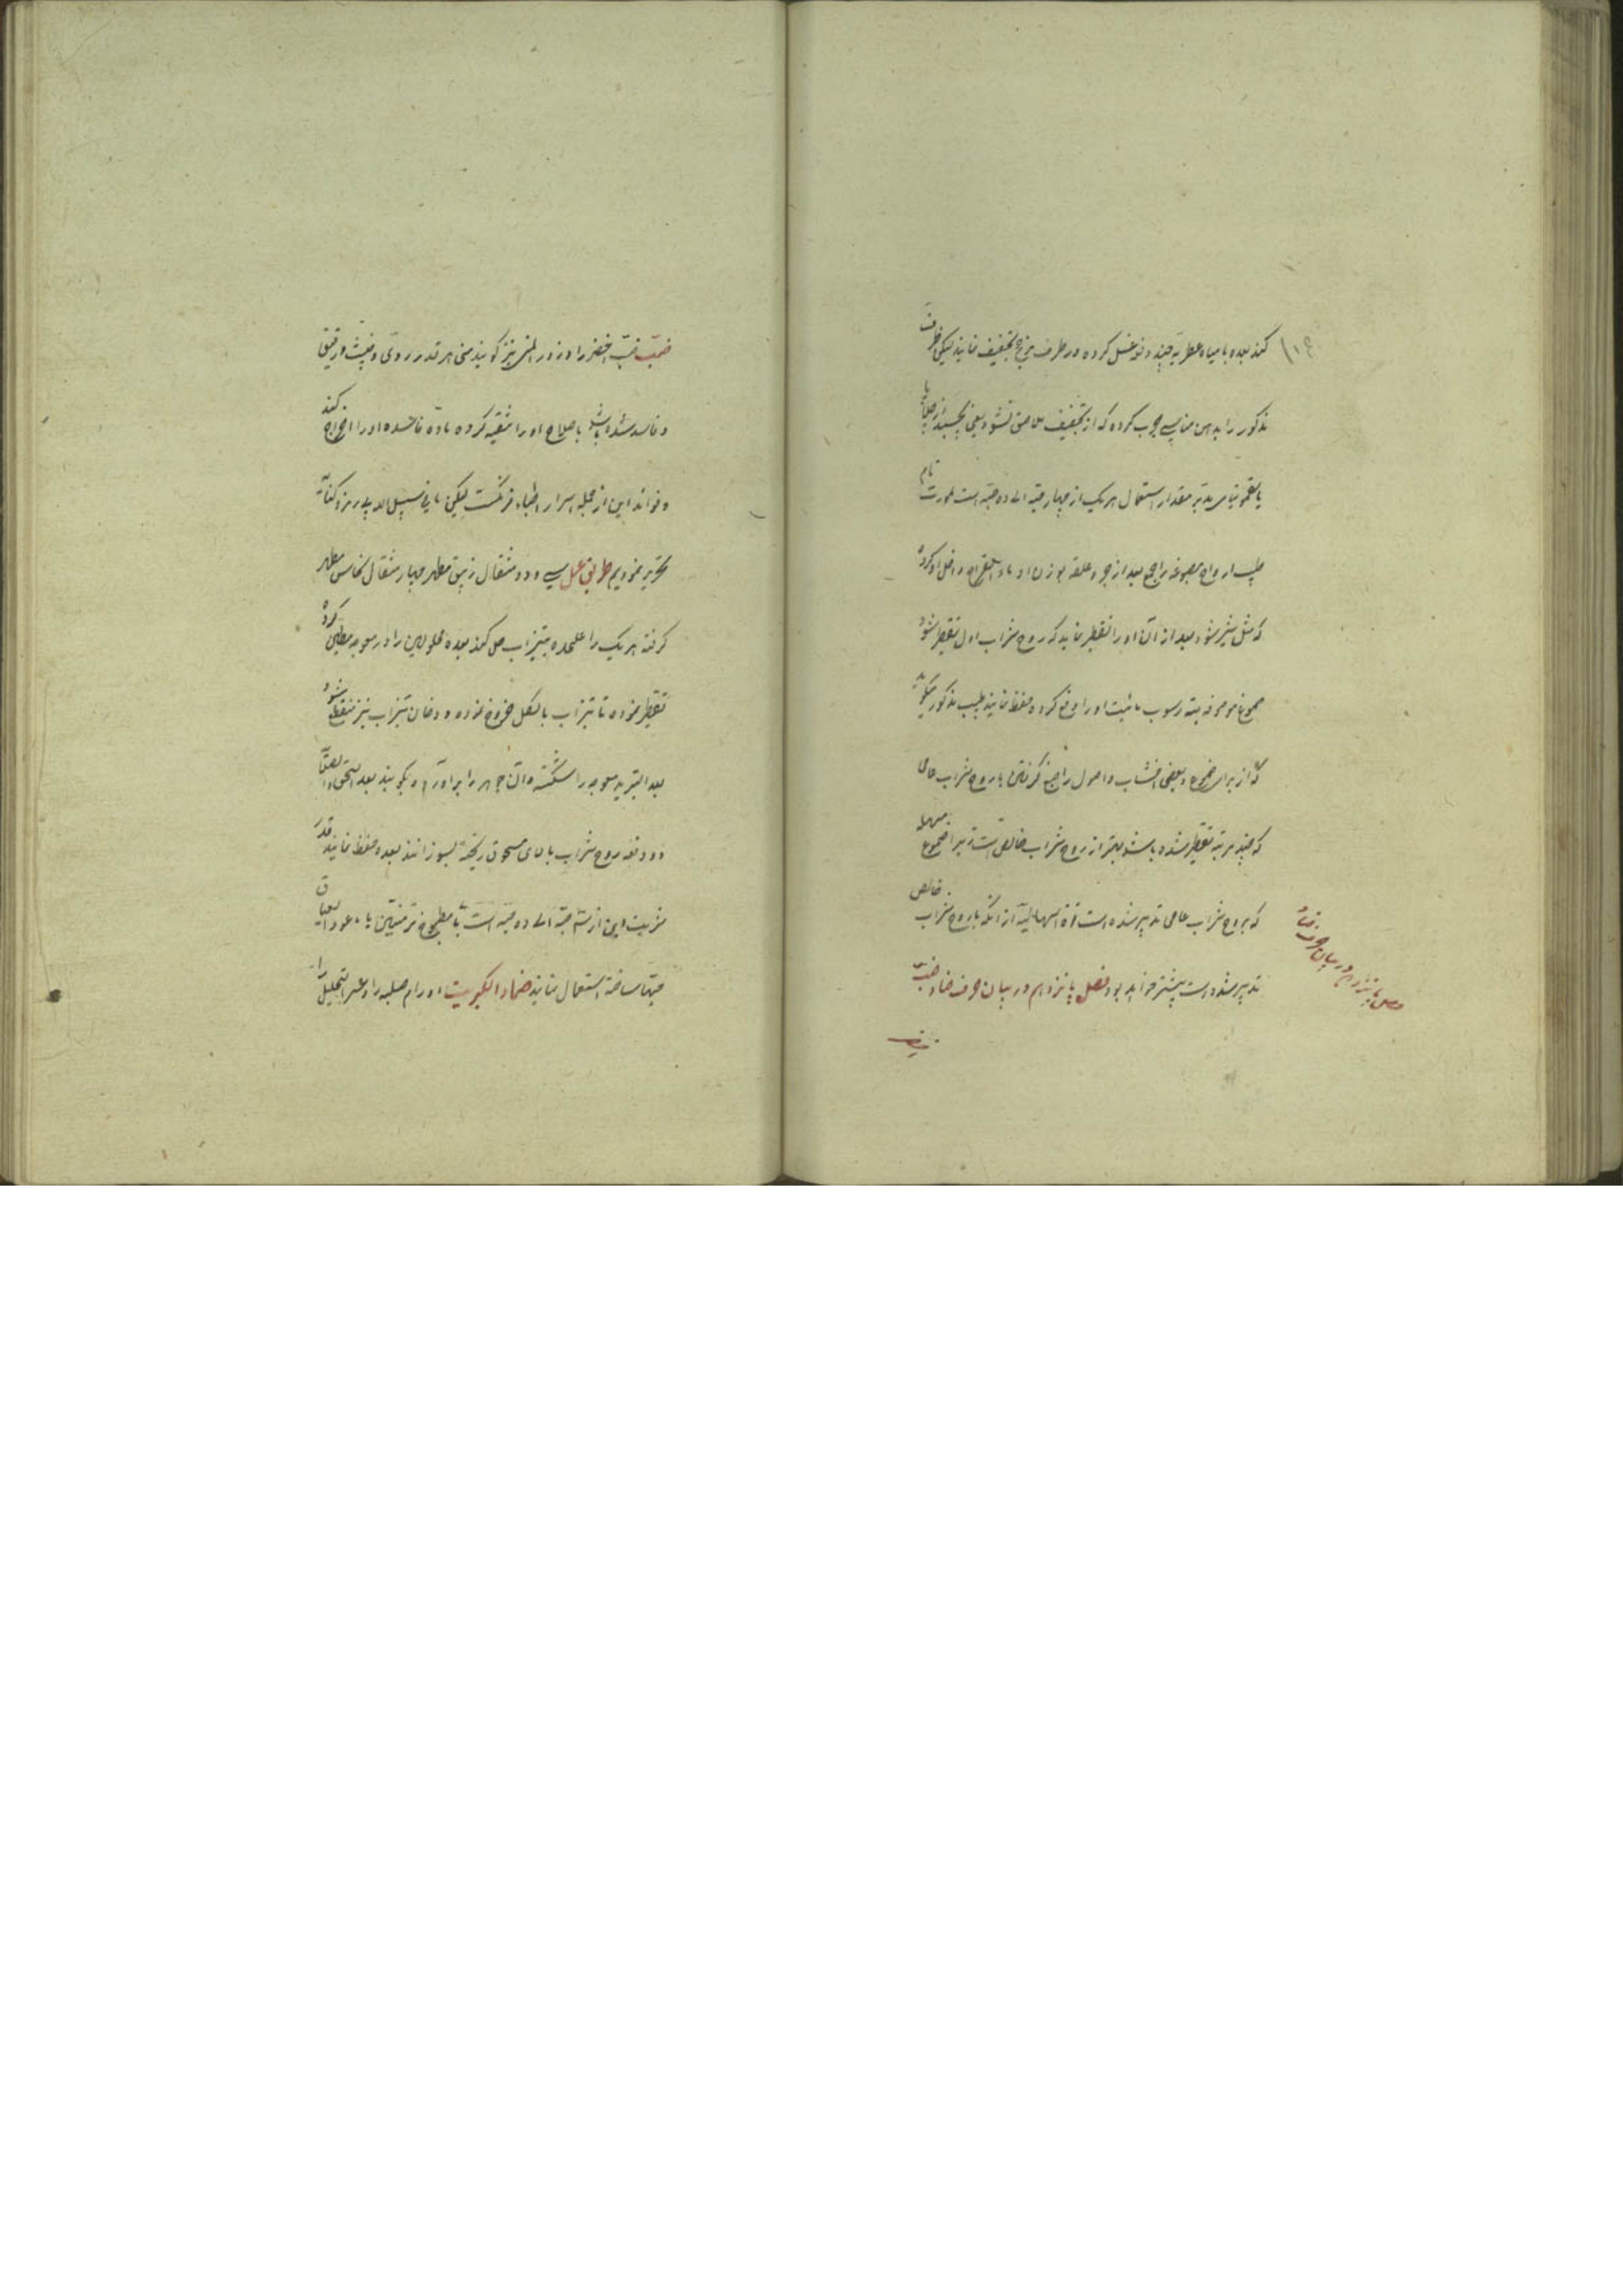 کنند بعده با میاه عطریه چند دفعه غسل کرده در ظرف زجاج تجفیف نمایند لیکن ظرف
مذکور را بدهن مناسبی چرب کرده که از تجفیف ملاصق نشود یعنی نچسبد از جلابا یا
یا سقمونیای مدبر مقدار استعمال هر یک از چهار حبه الی ده حبه است بصورت تام
طبیب ارواح مصبوغه راجع بعد از جر و علقه بوزن او ماء القراح داخل او کرده
که مثل شیر شود بعد از آن او را تقطیر نماید که روح شراب اول تقطیر شود
صموغ موصوفه بته رسوب مائیت او را دفع کرده حفظ نمایند طبیب مذکور میگوید
که از برای صموغ و بعضی اخشاب و اصول راجنج گرفتن با روح شراب عامی
که چند مرتبه تقطیر شده باشد بهتر از روح شراب خالص است زیرا صموغ مسهله
که بروح شراب عامی تدبیر شده است قوة اسهالیه از آنکه با روح شراب خالص
تدبیر شده است بیشتر خواهد بود فصل پانزدهم در بیان حرف ضاد ضبّ
فصل پانزدهم در بیان حرف ضاد
ضبّ ضبّ اخضر را وزور المنی نیز گویند منی هر قدر ردی و خبیث و رقیق
و فاسد شده باشد باصلاح او را تنقیه کرده مادّه فاسده او را اخراج کند
و فواید این از جمله اسرار اطباء فرنگست لیکن ما فی سبیل الله بلا رمز و کنایه
تحریر نمودیم طریق عمل سی و دو مثقال زیبق مطهر چهار مثقال نحاس مطهر
گرفته هر یک را علیحده بتیزاب حل کنند بعده محلولین را در معوجه مطین کرده
تقطیر نموده تا تیزاب بالکل خروج نموده و دخان تیزاب نیز منقطع شود
بعد التبرید معوجه را شکسته و آن جوهر را برآورده بکوبند بعد السحق و الصقا
دو دفعه روح شراب بالای مسحوق ریخته بسوزانند بعده حفظ نمایند قدر
شربت این از سه حبه الی ده حبه است با مطبوخ ترمنتین یا ماء عود القیاق
حبها ساخته استعمال نمایند ضماد الکبریت اورام صلبه را و عسر التحلیل را